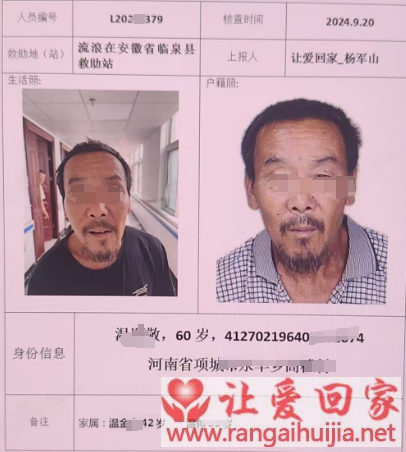 人员编号 L202 379 核查时间 2024.9.20
救助地（站） 流浪在安徽省临泉县救助站 上报人 让爱回家_杨军山
生活照： 户籍照：
身份信息 敬，60岁，41270219640 674
河南省项城市永丰乡
备注 家属：温金 42岁
让爱回家
www.rangaihuijia.net